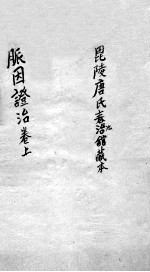 毘陵唐氏袁治館藏本
脈因證治卷上